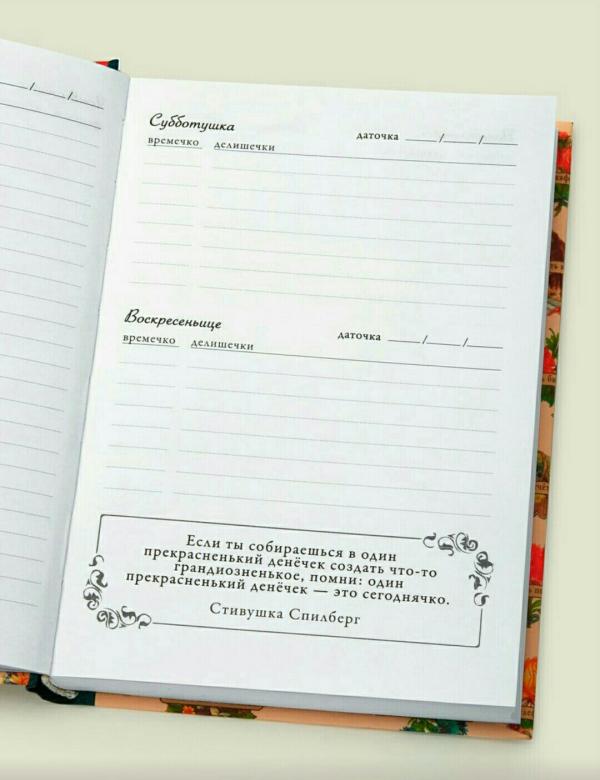 Субботушка
даточка ___/___/___
времечко делишечки
Воскресеньице
даточка ___/___/___
времечко делишечки
Если ты собираешься в один
прекрасненький денёчек создать что-то
грандиозненькое, помни: один
прекрасненький денёчек — это сегоднячко.
Стивушка Спилберг